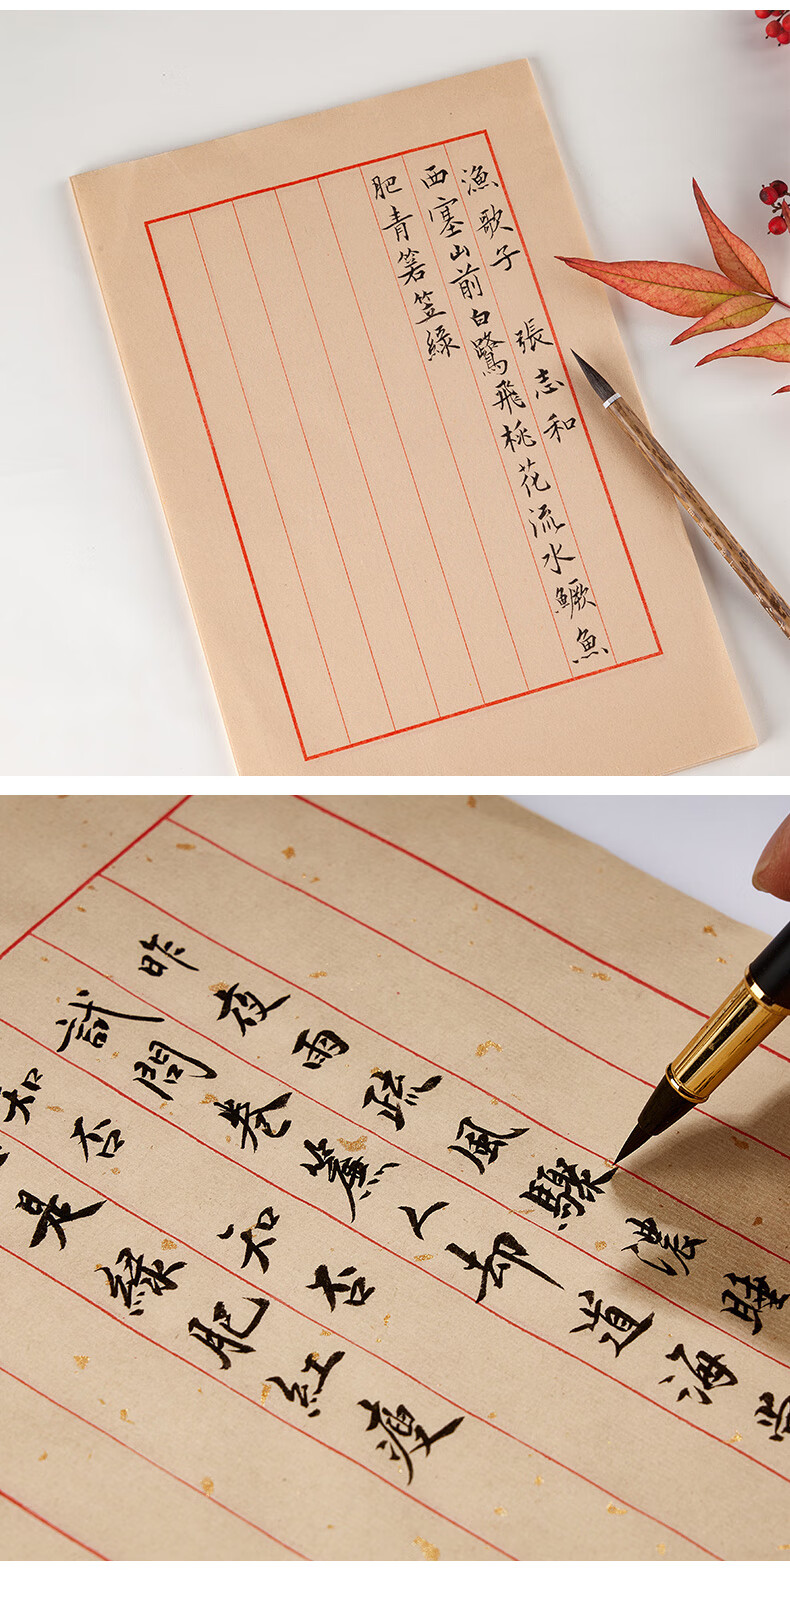 漁歌子 張志和
西塞山前白鷺飛桃花流水鱖魚
肥青箬笠綠
昨夜雨疏風驟濃睡
試問卷簾人却道海
知否知否
是綠肥紅瘦